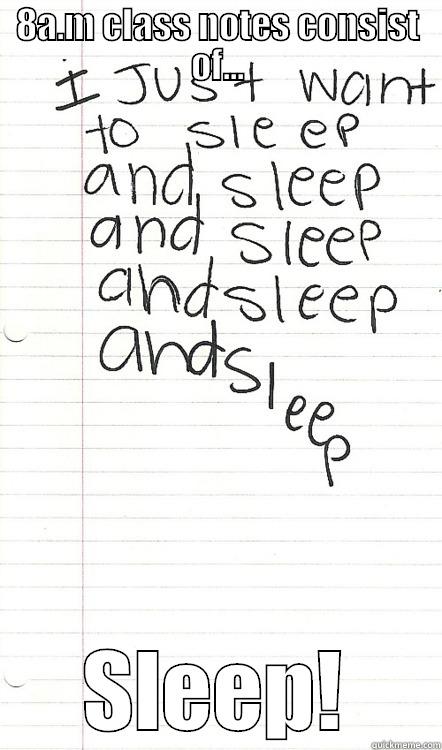 8a.m class notes consist
of...
I Just want
to sleep
and sleep
and sleep
and sleep
and sleep
Sleep!
quickmeme.com